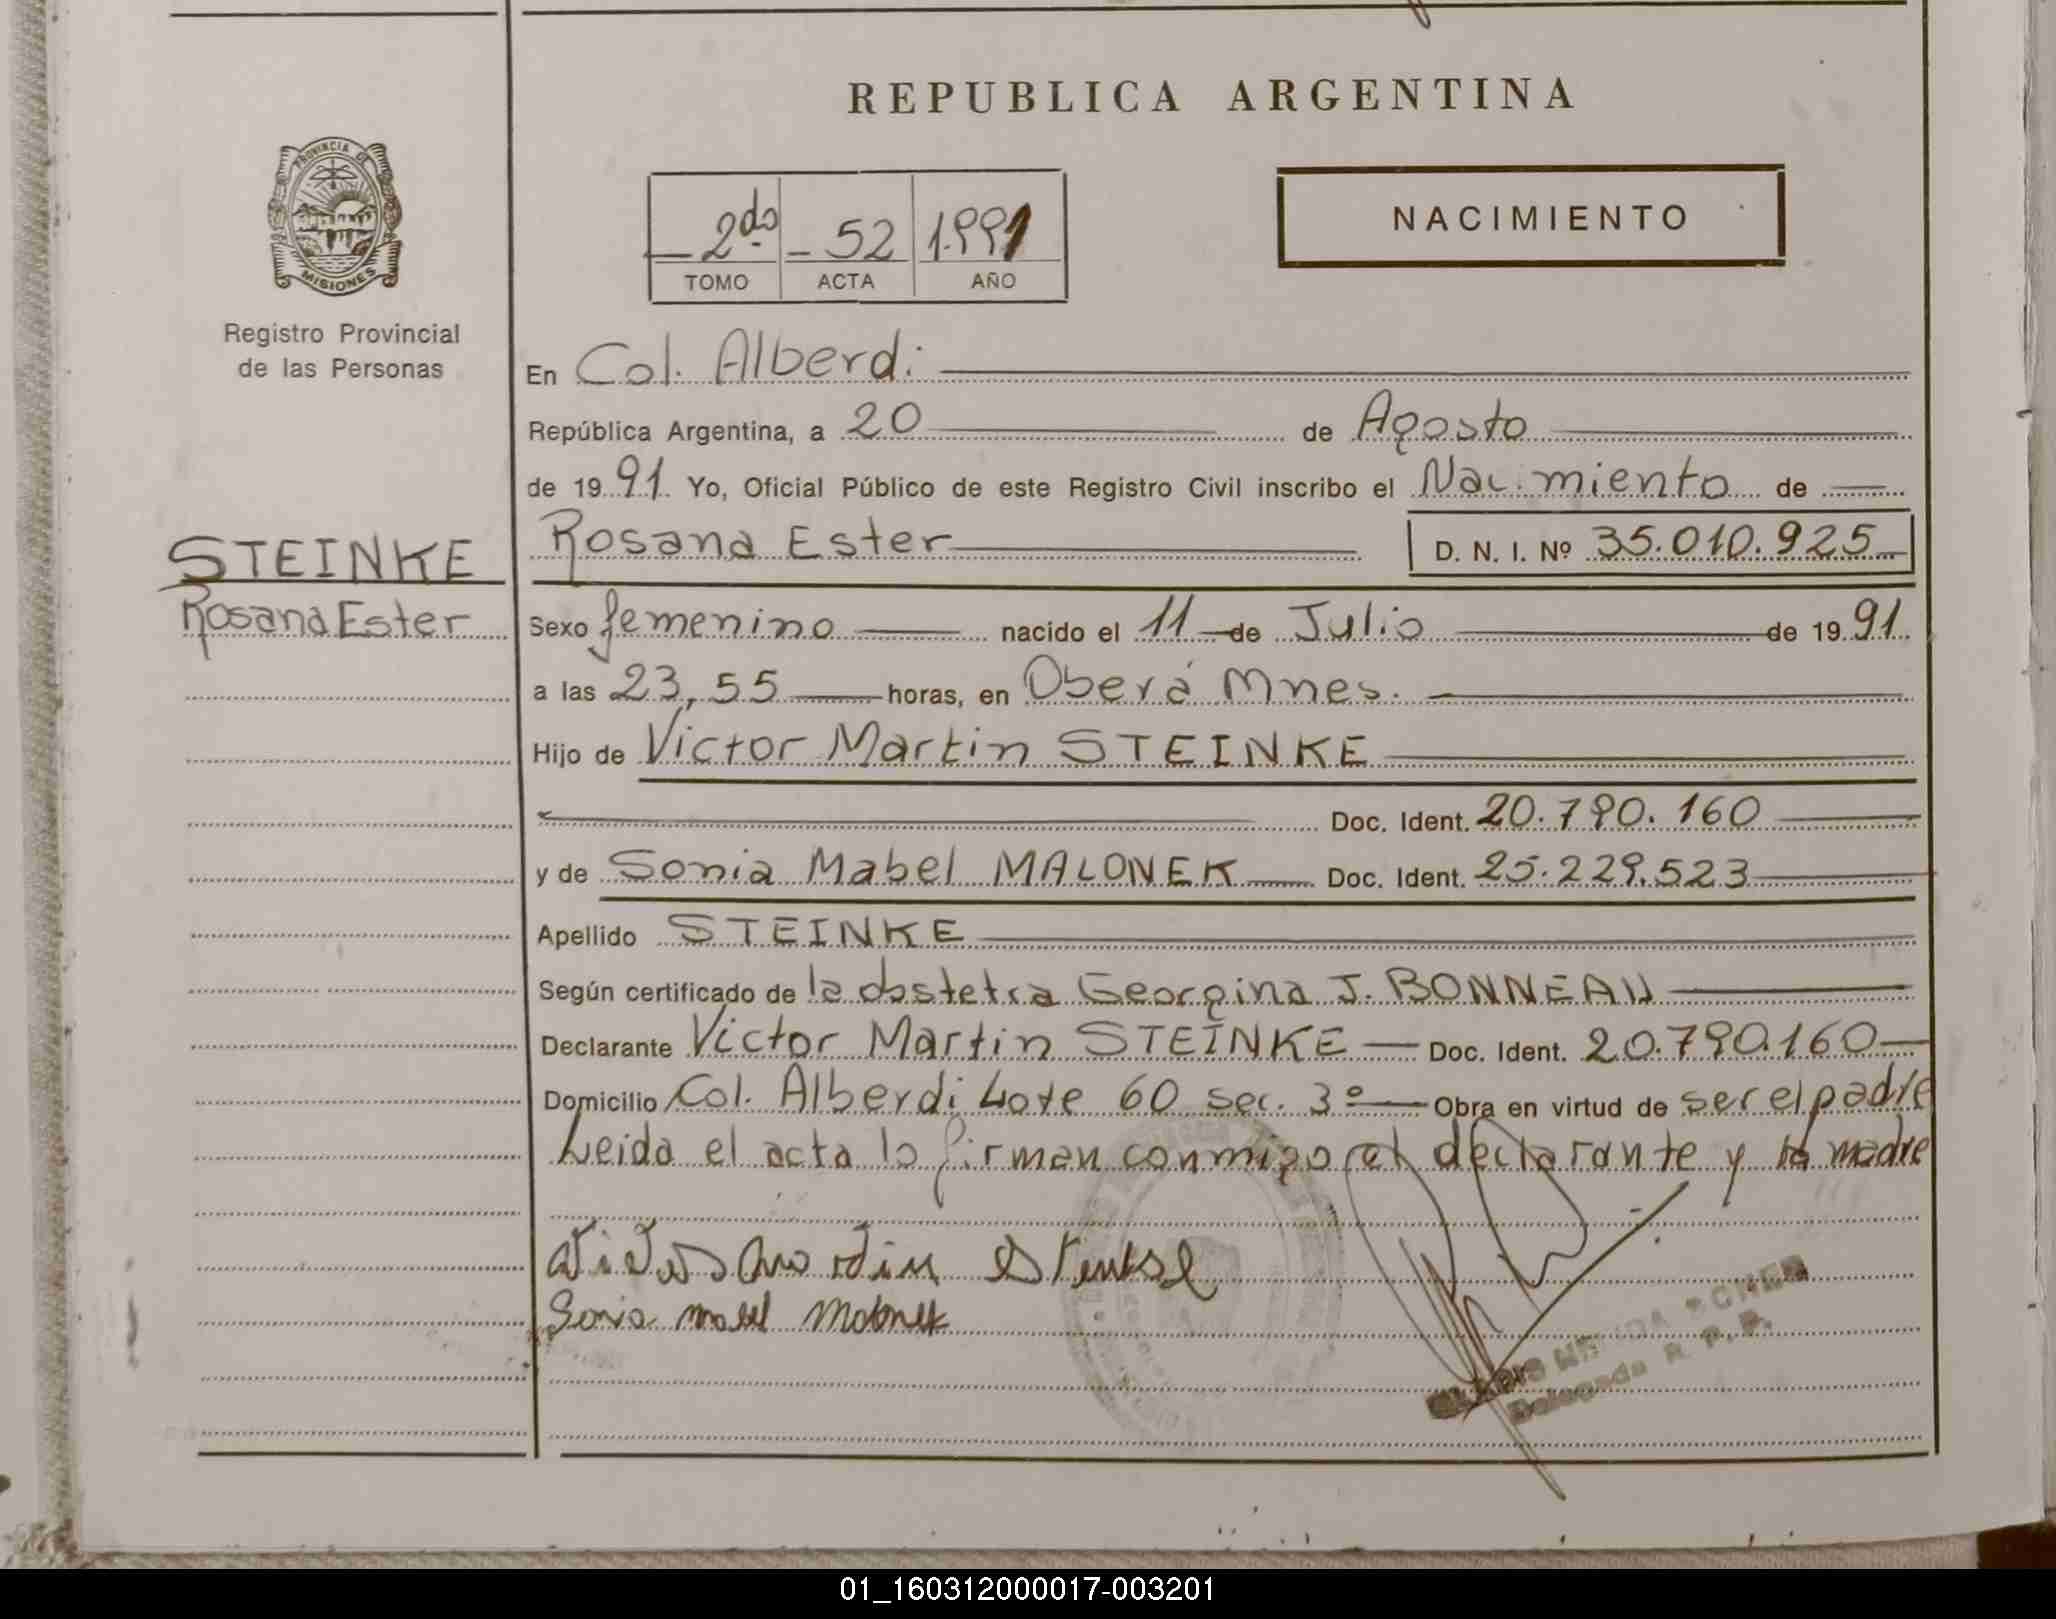 REPUBLICA ARGENTINA
PROVINCIA DE
MISIONES
Registro Provincial
de las Personas
2do 52 1.991
TOMO ACTA AÑO
NACIMIENTO
En Col. Alberdi
República Argentina, a 20 de Agosto
de 19 91. Yo, Oficial Público de este Registro Civil inscribo el Nacimiento de
STEINKE
Rosana Ester
Rosana Ester D. N. I. Nº 35.010.925
Sexo femenino nacido el 11 de Julio de 19 91.
a las 23,55 horas, en Oberá Mnes.
Hijo de Victor Martin STEINKE
Doc. Ident. 20.790.160
y de Sonia Mabel MALONEK Doc. Ident. 25.229.523
Apellido STEINKE
Según certificado de la obstetra Georgina J. BONNEAU
Declarante Victor Martin STEINKE Doc. Ident. 20.790.160
Domicilio Col. Alberdi Lote 60 sec. 3º Obra en virtud de ser el padre
Leida el acta lo firman conmigo el declarante y la madre
Sonia mabel Malonek
Delegada R. P. P.
01_160312000017-003201